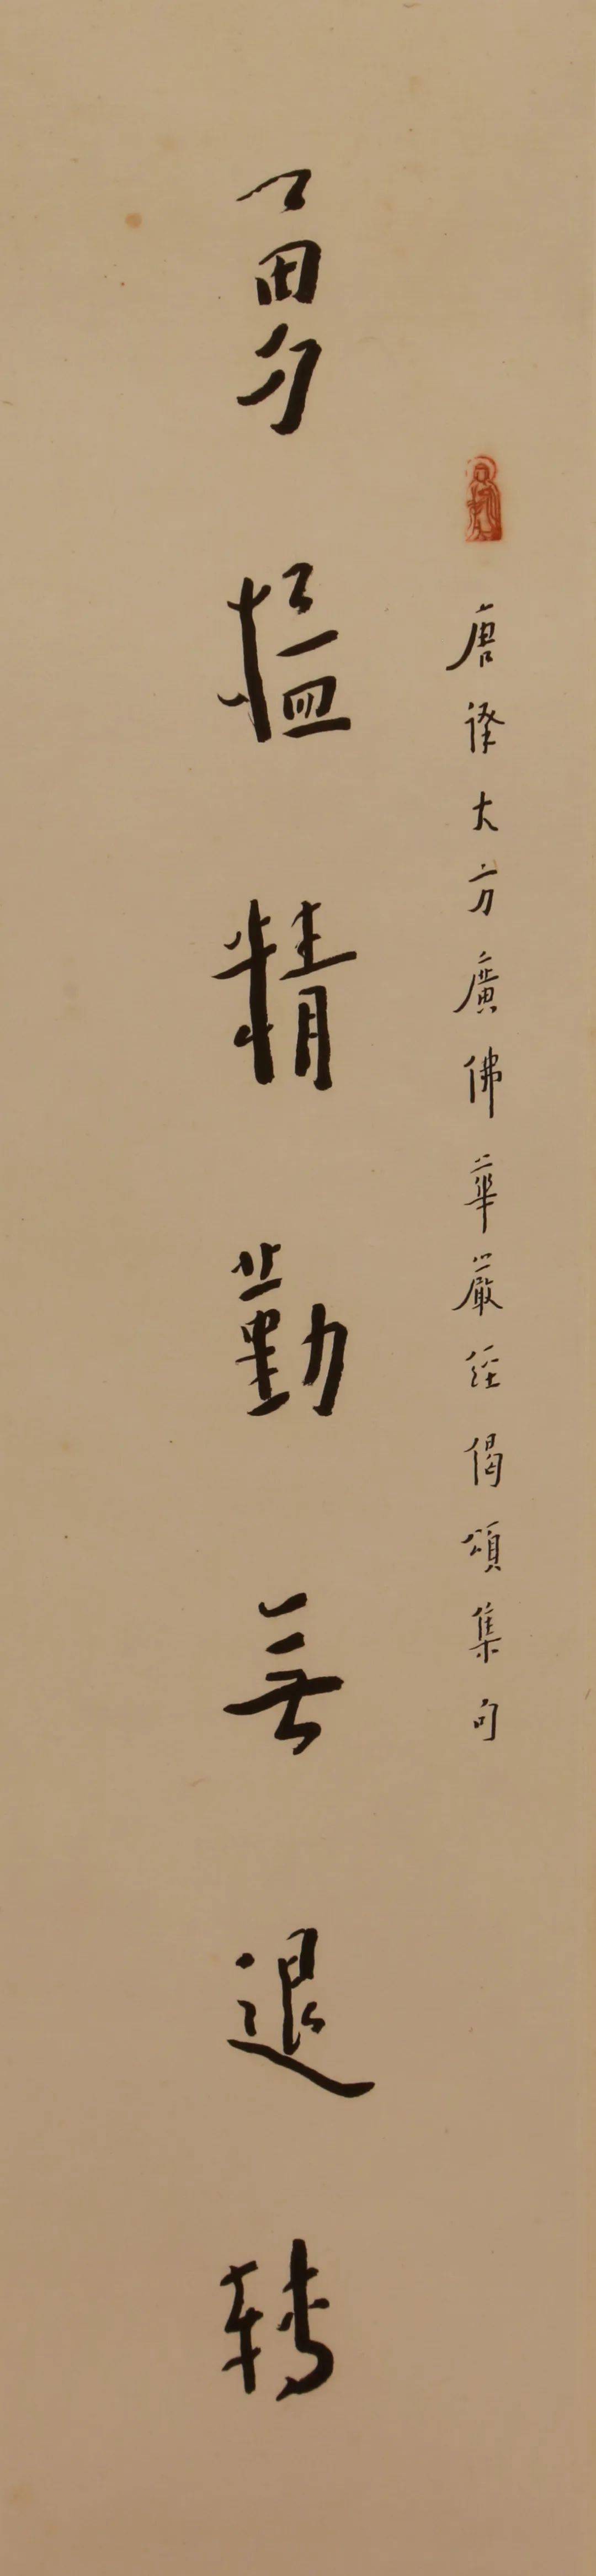 唐譯大方廣佛華嚴經偈頌集句
勇猛精勤無退轉